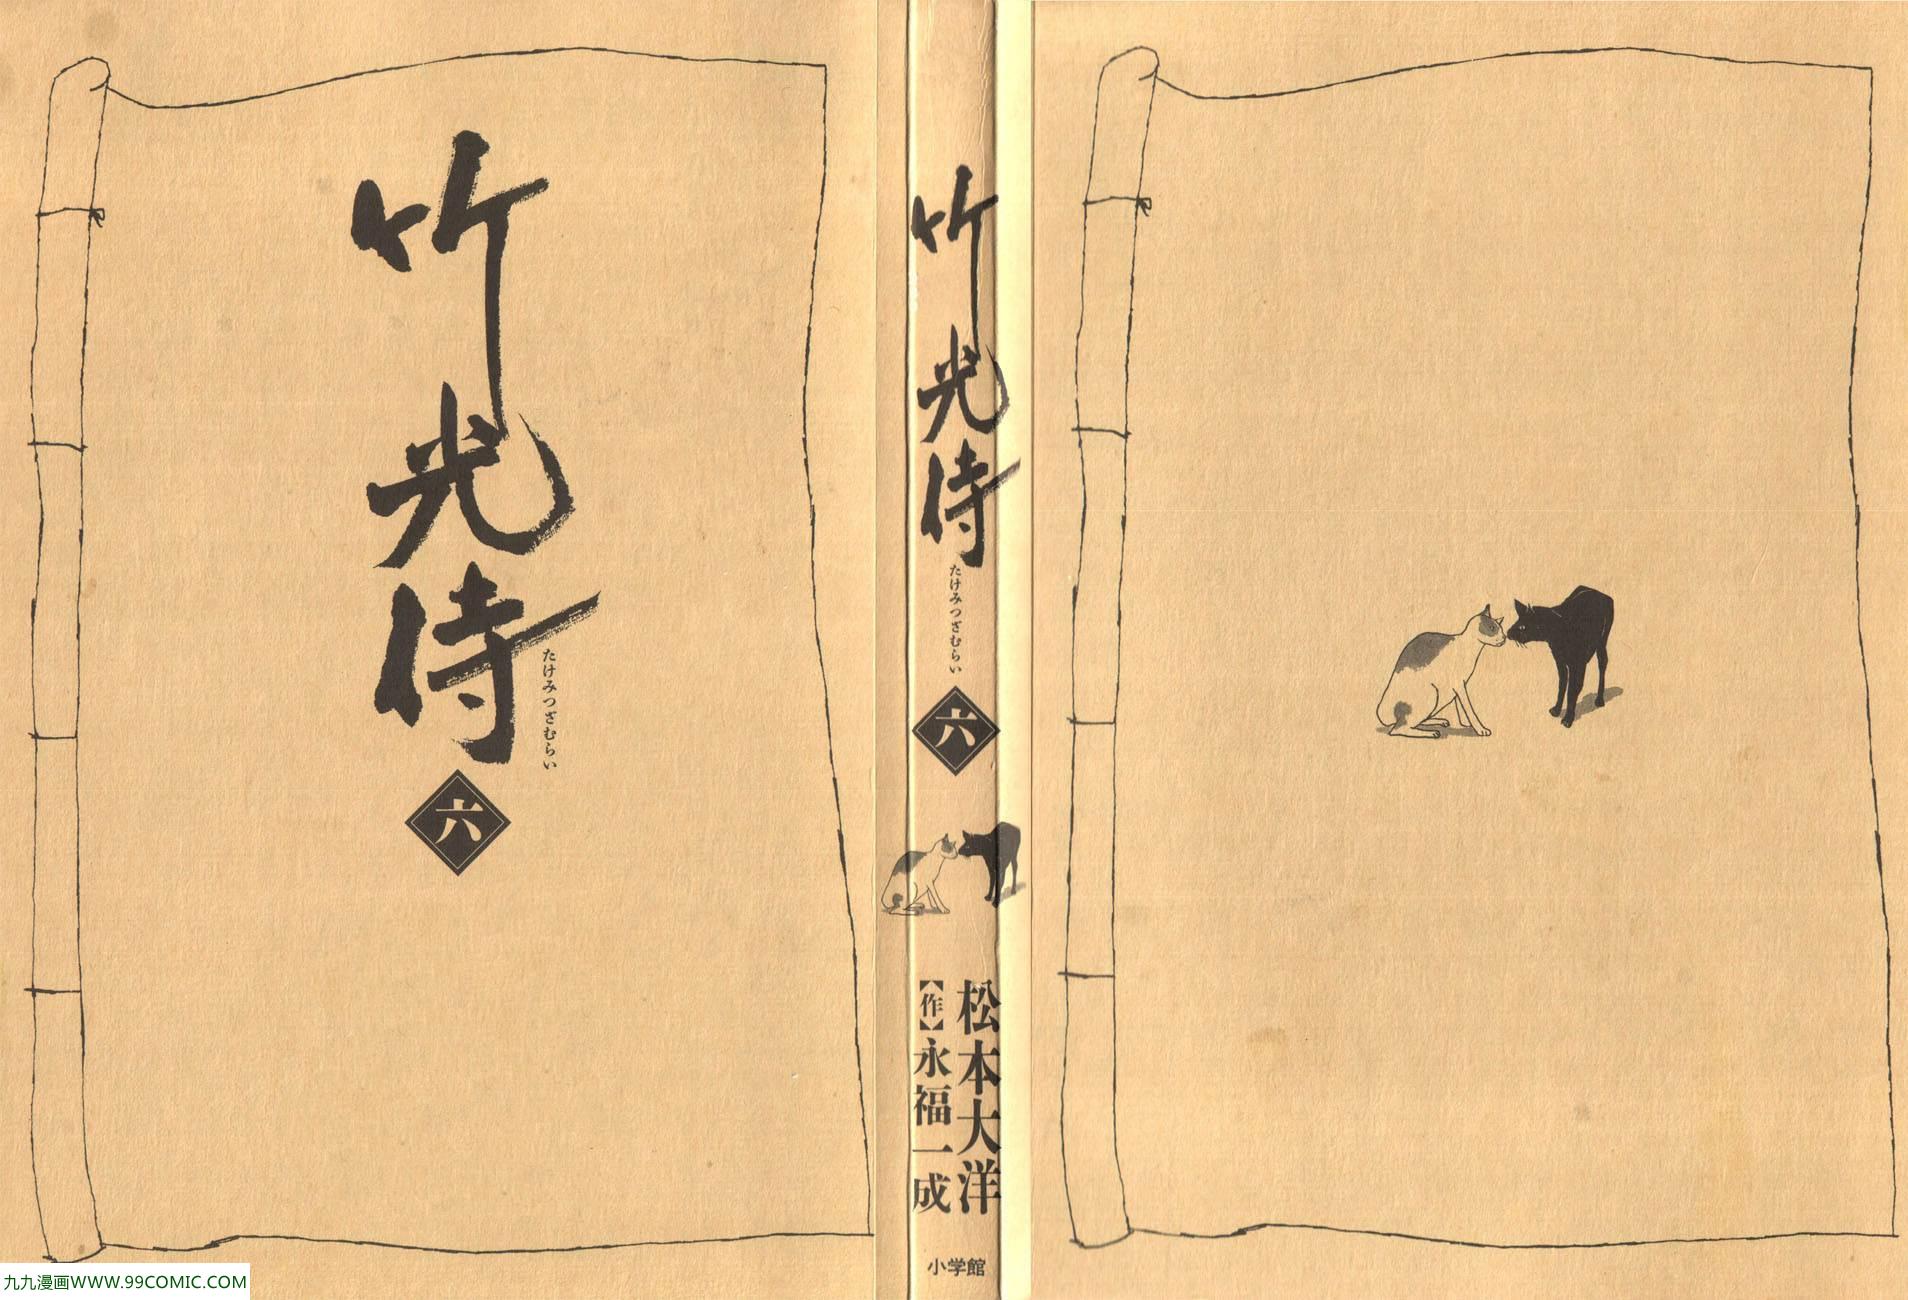 竹光侍
たけみつざむらい
六
竹光侍
たけみつざむらい
六
松本大洋
【作】永福一成
小学館
九九漫画WWW.99COMIC.COM